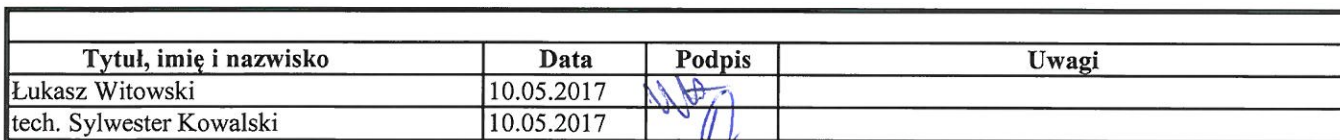 Tytuł, imię i nazwisko Data Podpis Uwagi
Łukasz Witowski 10.05.2017
tech. Sylwester Kowalski 10.05.2017